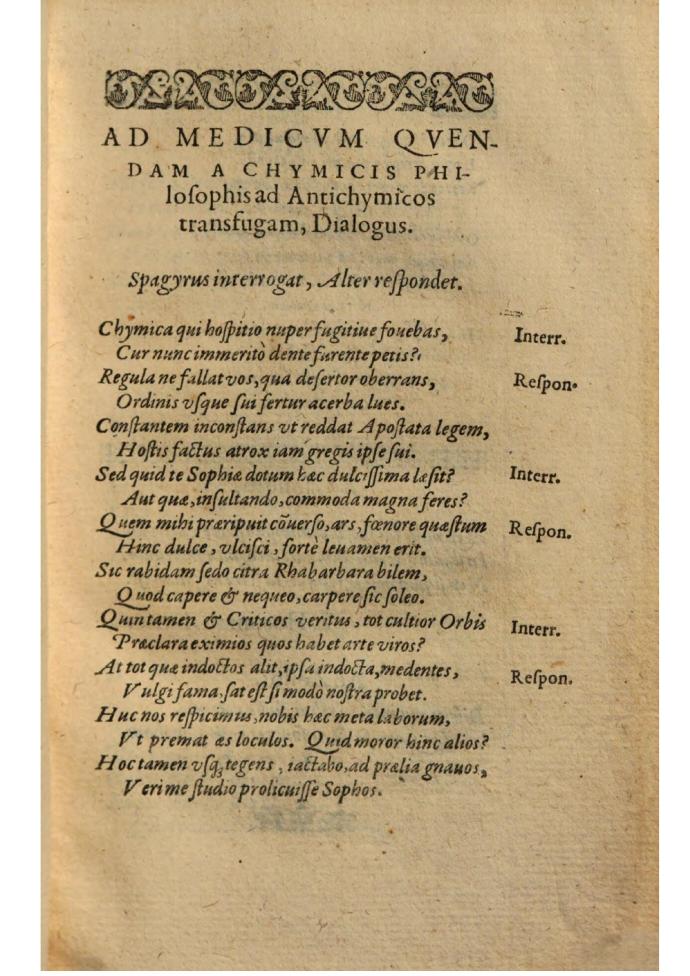 AD MEDICVM QVEN-
DAM A CHYMICIS PHI-
loſophis ad Antichymicos
transfugam, Dialogus.
Spagyrus interrogat, Alter reſpondet.
Chymica qui hoſpitio nuper fugitiue fouebas, Interr.
Cur nunc immeritò dente furente petis?
Regula ne fallat vos, qua deſertor oberrans, Reſpon.
Ordinis vſque ſui fertur acerba lues.
Conſtantem inconſtans vt reddat Apoſtata legem,
Hoſtis factus atrox iam gregis ipſe ſui.
Sed quid te Sophiæ dotum hæc dulciſſima læſit? Interr.
Aut quæ, inſultando, commoda magna feres?
Quem mihi præripuit cõuerſo, ars, fœnore quæſtum Reſpon.
Hinc dulce, vlciſci, fortè leuamen erit.
Sic rabidam ſedo citra Rhabarbara bilem,
Quod capere & nequeo, carpere ſic ſoleo.
Quin tamen & Criticos veritus, tot cultior Orbis Interr.
Præclara eximios quos habet arte viros?
At tot quæ indoctos alit, ipſa indocta, medentes, Reſpon.
Vulgi fama, ſat eſt ſi modò noſtra probet.
Huc nos reſpicimus, nobis hæc meta laborum,
Vt premat æs loculos. Quid moror hinc alios?
Hoc tamen vſq; tegens, iactabo, ad prælia gnauos,
Veri me ſtudio prolicuiſſe Sophos.